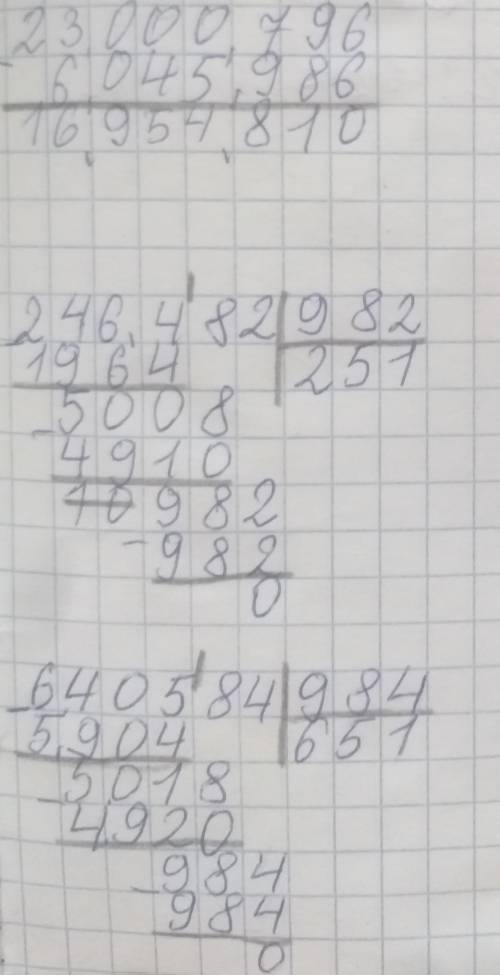 23.000.796
- 6.045.986
16.954.810
246.482 | 982
- 1964 | 251
5008
- 4910
10982
- 982
0
640584 | 984
- 5904 | 651
5018
- 4920
984
- 984
0